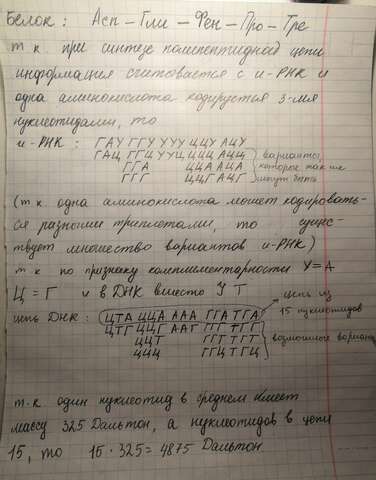 Белок: Асп – Гли – Фен – Про – Тре
т к при синтезе полипептидной цепи
информация считывается с и-РНК и
одна аминокислота кодируется 3-мя
нуклеотидами, то
и-РНК: ГАУ ГГУ УУУ ЦЦУ АЦУ
ГАЦ ГГЦ УУЦ ЦЦЦ АЦЦ варианты,
ГГА ЦЦА АЦА которые также
ГГГ ЦЦГ АЦГ могут быть
(т к одна аминокислота может кодировать-
ся разными триплетами, то сущес-
твует множество вариантов и-РНК)
т к по признаку комплиментарности У=А
Ц = Г и в ДНК вместо У Т
цепь из
цепь ДНК: ЦТА ЦЦА ААА ГГА ТГА 15 нуклеотидов
ЦТГ ЦЦГ ААГ ГГГ ТГГ
ЦЦТ ГГТ ТГТ возможные вариан
ЦЦЦ ГГЦ ТГЦ
т.к один нуклеотид в среднем имеет
массу 325 Дальтон, а нуклеотидов в цепи
15, то 15 · 325 = 4875 Дальтон